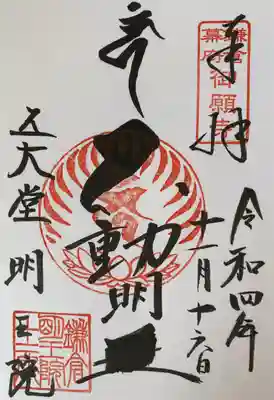 奉拝
鎌倉
幕府
御願寺
令和四年
十一月十六日
不動明王
五大堂明王院
鎌倉
明王院